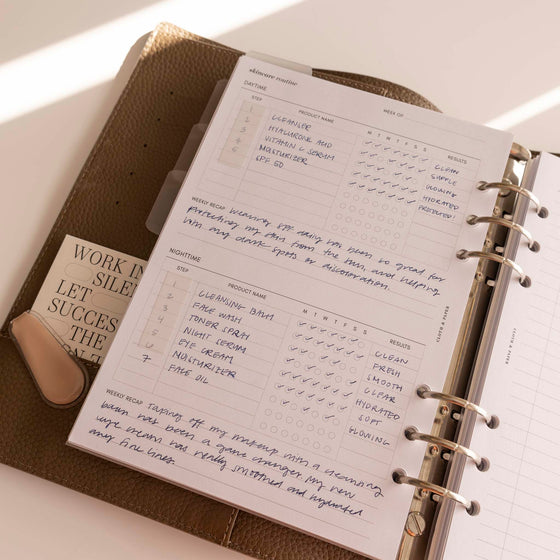 skincare routine
DAYTIME
WEEK OF
STEP PRODUCT NAME M T W T F S S RESULTS
1 CLEANSER CLEAN
2 HYALURONIC ACID SUPPLE
3 VITAMIN C SERUM GLOWING
4 MOISTURIZER HYDRATED
5 SPF 50 PROTECTED!
WEEKLY RECAP Wearing SPF daily has been so great for
protecting my skin from the sun, and helping
with any dark spots or discoloration.
NIGHTTIME
STEP PRODUCT NAME M T W T F S S RESULTS
1 CLEANSING BALM CLEAN
2 FACE WASH FRESH
3 TONER SPRAY SMOOTH
4 NIGHT SERUM CLEAR
5 EYE CREAM HYDRATED
6 MOISTURIZER SOFT
7 FACE OIL GLOWING
WEEKLY RECAP Taking off my makeup with a cleansing
balm has been a game changer. My new
eye cream has really smoothed and hydrated
any fine lines.
CLOTH & PAPER
WORK IN
SILEN
LET
SUCCES
THE